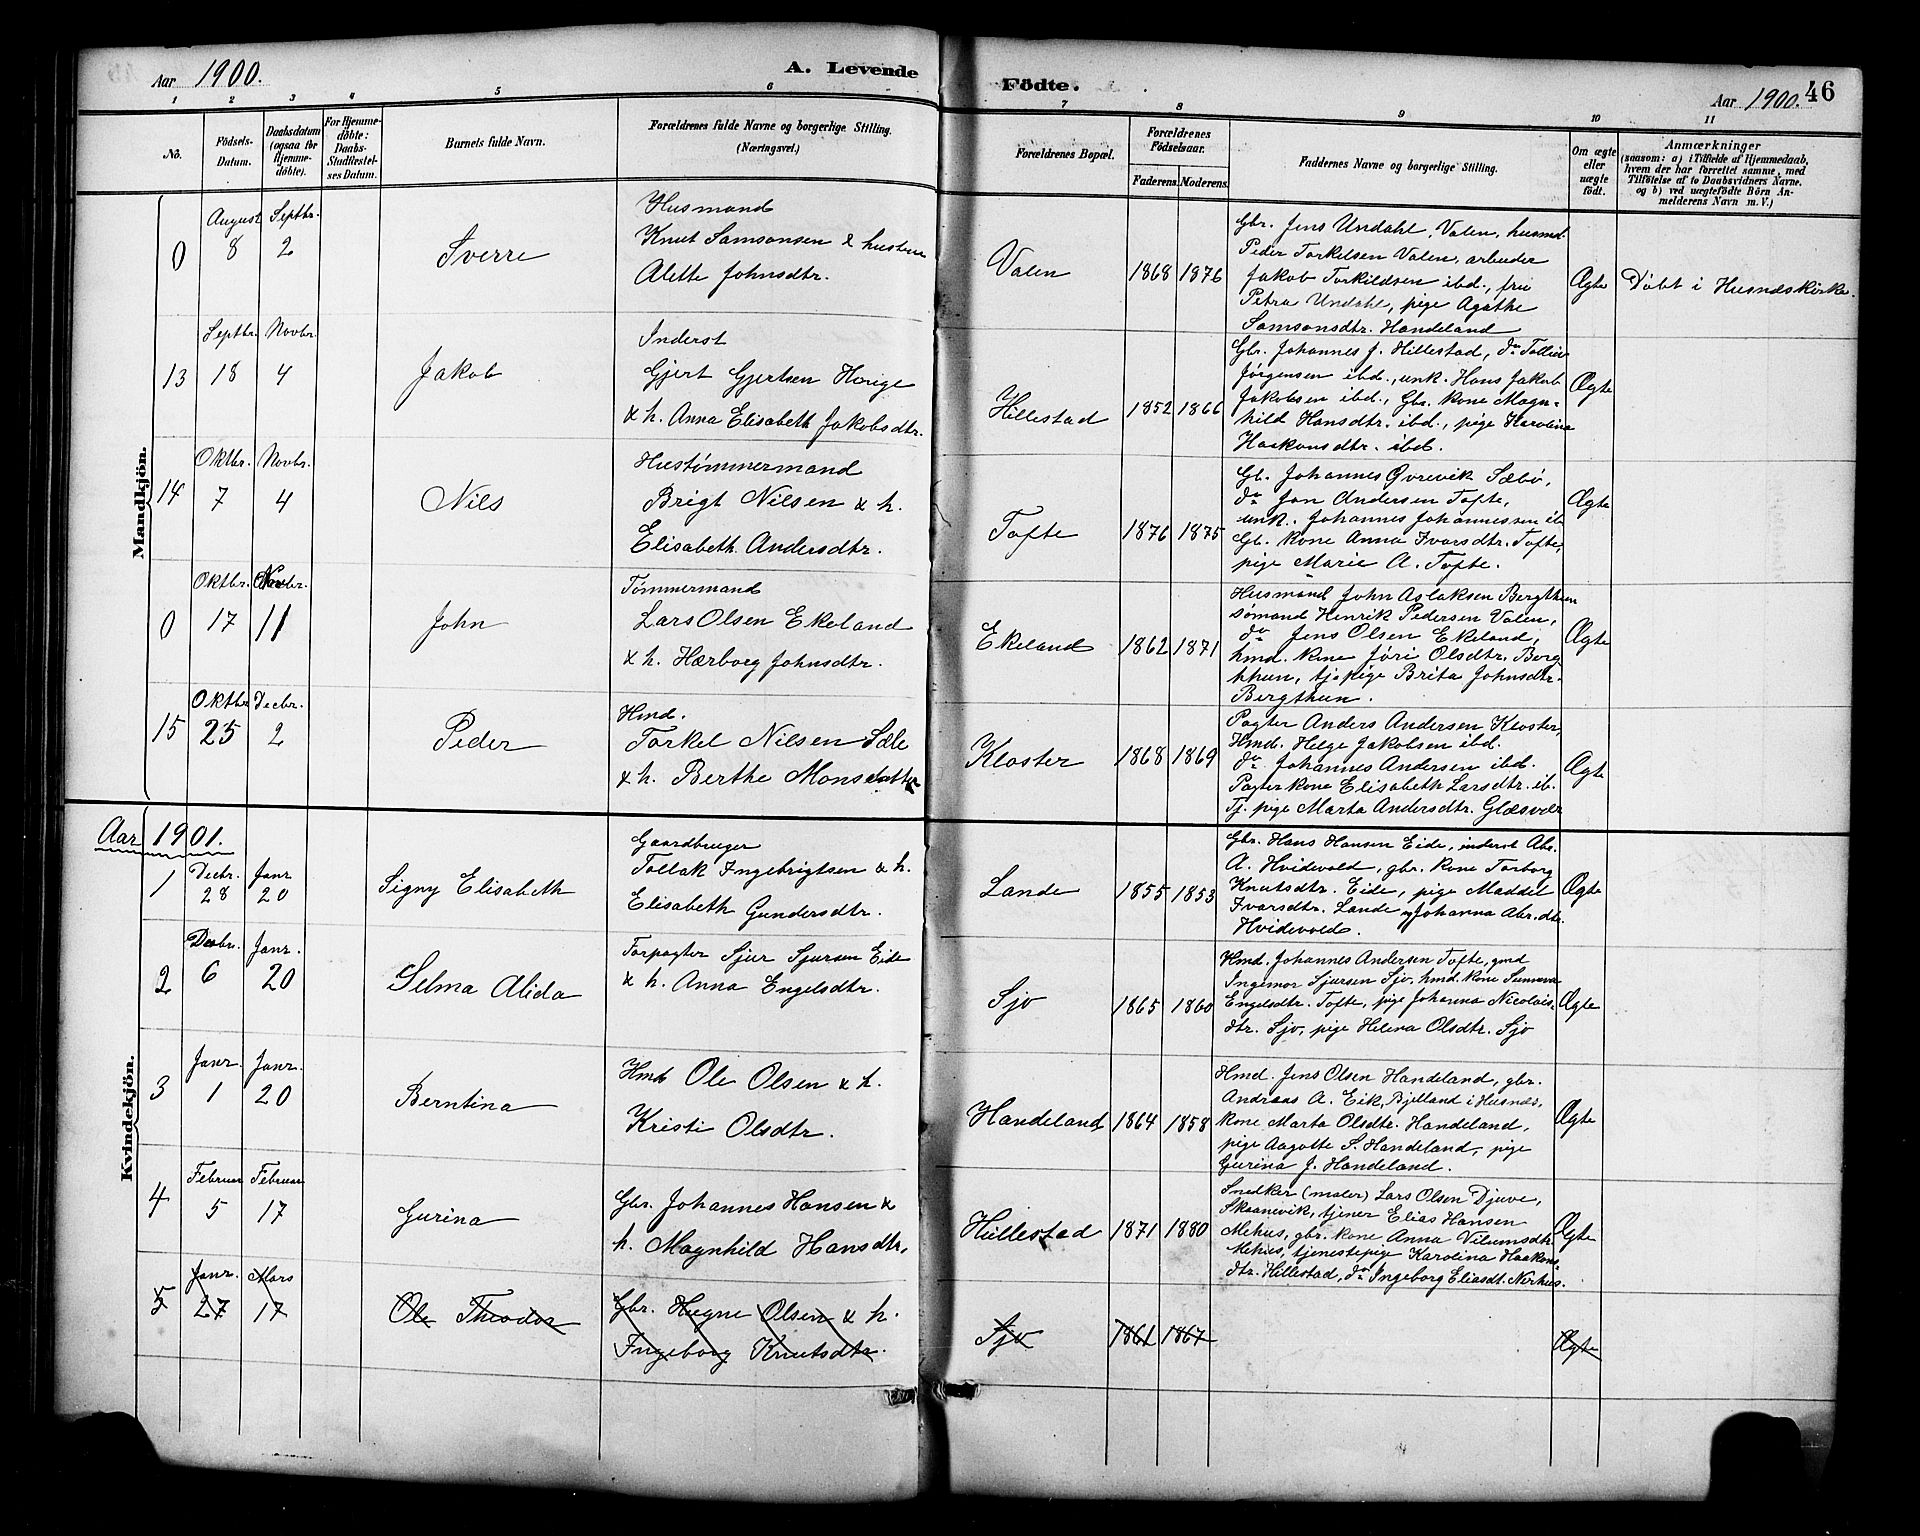 Aar 1900.
A. Levende
Födte.
Aar 1900.
46
1 2 3 4 5 6 7 8 9 10 11
No.
Födsels-
Datum.
Daabsdatum
(ogsaa for
Hjemme-
døbte).
For Hjemme-
døbte:
Daabs-
Stadfæstel-
ses Datum.
Barnets fulde Navn.
Forældrenes fulde Navne og borgerlige Stilling.
(Næringsvei.)
Forældrenes Bopæl.
Forældrenes
Födselsaar.
Faderens. Moderens.
Faddernes Navne og borgerlige Stilling.
Om ægte
eller
uægte
født.
Anmærkninger
(saasom: a) i Tilfælde af Hjemmedaab,
hvem der har forrettet samme, med
Tilføielse af to Daabsvidners Navne.
og b) ved uægtefødte Börn An-
melderens Navn m. V.)
Mandkjön.
0
August
8
Septbr.
2
Sverre
Husmand
Knut Samsonsen & hustru
Alette Johnsdtr.
Valen
1868 1876
Gbr. Jens Undahl, Valen, husmd.
Peder Torkelsen Valen, arbeider
Jakob Torkildsen ibd., fru
Petra Undahl, pige Agathe
Samsonsdtr. Handeland
Ægte
Døbt i Husnæs kirke.
13
Septbr.
18
Novbr.
4
Jakob
Inderst
Gjert Gjertsen Hauge
& h. Anna Elisabeth Jakobsdtr.
Hillestad
1852 1866
Gbr. Johannes J. Hillestad, do Tollev
Jørgensen ibd., unk. Hans Jakob
Jakobsen ibd., Gbr. kone Magn-
hild Hansdtr. ibd., pige Karolina
Haakonsdtr. ibd.
Ægte
14
Oktbr.
7
Novbr.
4
Nils
Hustømmermand
Brigt Nilsen & h.
Elisabeth Andersdtr.
Tofte
1876 1875
Gb. Johannes Øvrevik Sæbø,
do Jon Andersen Tofte,
unk. Johannes Johannessen ib
Gb. kone Anna Ivarsdtr. Tofte,
pige Marie A. Tofte.
Ægte
0
Oktbr.
17
Novbr.
11
John
Tømmermand
Lars Olsen Ekeland
& h. Hærborg Johnsdtr.
Ekeland
1862 1871
Husmand John Aslaksen Bergthun
sømand Henrik Pedersen Valen,
do Jens Olsen Ekeland,
hmd. kone Jøri Olsdtr. Berg
thun, tj. pige Brita Johnsdtr.
Bergthun.
Ægte
15
Oktbr
25
Decbr.
2
Peder
Hmd.
Torkel Nilsen Sæle
& h. Berthe Monsdatter
Kloster
1868 1869
Pagter Anders Andersen Kloster,
Hmd. Helge Jakobsen ibd.
do Johannes Andersen ibd.
Pagter kone Elisabeth Larsdtr. ib.
Tj. pige Marta Andersdtr. Glæsvær
Ægte
Aar 1901.
Kvindekjön.
1
Decbr.
28
Janr.
20
Signy Elisabeth
Gaardbruger
Tollak Ingebrigtsen & h.
Elisabeth Gundersdtr.
Lande
1855 1853
Gbr. Hans Hansen Eide, inderst Abr.
A. Hvidevold, gbr. kone Torborg
Knutsdtr. Eide, pige Maddel
Ivarsdtr. Lande og Johanna Abr.dtr.
Hvidevold.
Ægte
2
Decbr.
6
Janr.
20
Selma Alida
Forpagter Sjur Sjursen Eide
& h. Anna Engelsdtr.
Sjo
1865 1860
Hmd. Johannes Andersen Tofte, gmd
Ingemor Sjursen Sjo, hmd. kone Sunneva
Engelsdtr. Tofte, pige Johanna Nicolais-
dtr. Sjo, pige Helena Olsdtr. Sjo
Ægte
3
Janr.
1
Janr.
20
Berntina
Hmd Ole Olsen & h.
Kristi Olsdtr.
Handeland
1864 1858
Hmd. Jens Olsen Handeland, gbr.
Andreas A. Eik, Bjelland i Husnæs,
kone Marta Olsdtr. Handeland,
pige Aagotte S. Handeland, pige
Gurina J. Handeland.
Ægte
4
Februar
5
Februar
17
Gurina
Gbr. Johannes Hansen &
h. Magnhild Hansdtr.
Hillestad
1871 1880
Snedker (maler) Lars Olsen Djuve,
Skaanevik, tjener Elias Hansen
Mehus, gbr. kone Anna Vilumsdtr
Mehus, tjenestepige Karolina Haakons-
dtr. Hillestad, do Ingeborg Eliasdt. Nerhus.
Ægte
5
Janr.
27
Mars
17
Ole Theodor
Gbr. Hugne Olsen & h.
Ingeborg Knutsdtr.
Sjo
1861 1867
Ægte